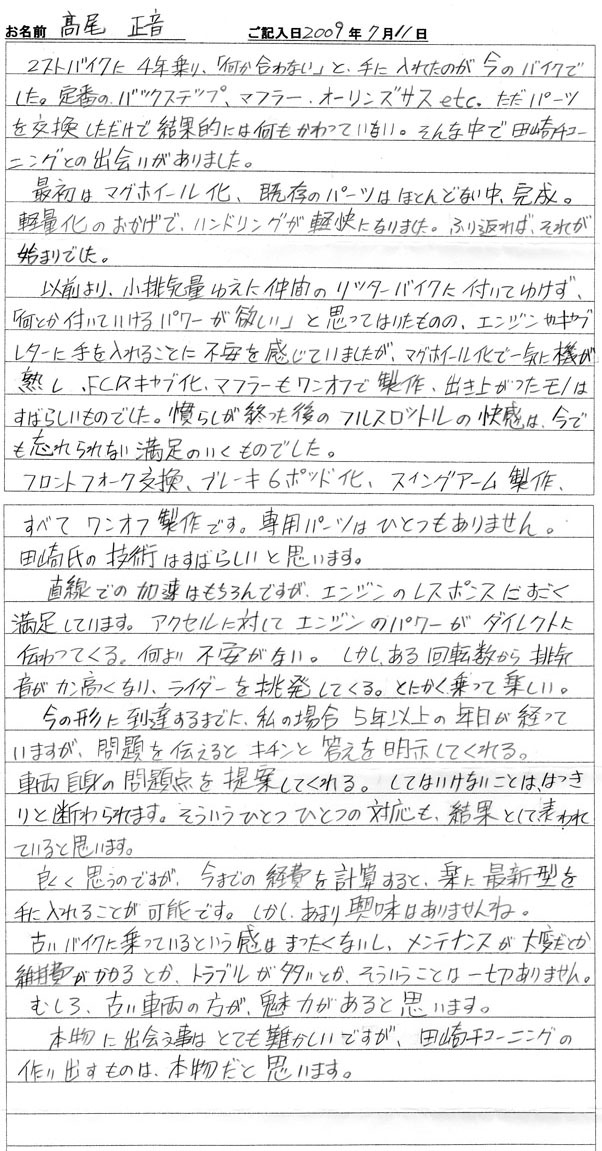 お名前 髙尾 正音 ご記入日2009年7月11日
2ストバイクに4年乗り、「何か合わない」と、手に入れたのが今のバイクで
した。定番の、バックステップ、マフラー・オーリンズサスetc. ただパーツ
を交換しただけで結果的には何もかわっていない。そんな中で田崎チュー
ニングとの出会いがありました。
最初はマグホイール化、既存のパーツはほとんどない中、完成。
軽量化のおかげで、ハンドリングが軽快になりました。ふり返れば、それが
始まりでした。
以前より、小排気量ゆえに仲間のリッターバイクに付いてゆけず、
「何とか付いていけるパワーが欲しい」と思ってはいたものの、エンジンやキャブ
レターに手を入れることに不安を感じていましたが、マグホイール化で一気に機が
熟し、FCRキャブ化、マフラーもワンオフで製作、出き上がったモノは
すばらしいものでした。慣らしが終った後のフルスロットルの快感は、今で
も忘れられない満足のいくものでした。
フロントフォーク交換、ブレーキ6ポッド化、スイングアーム製作、
すべてワンオフ製作です。専用パーツはひとつもありません。
田崎氏の技術はすばらしいと思います。
直線での加速はもちろんですが、エンジンのレスポンスにすごく
満足しています。アクセルに対してエンジンのパワーがダイレクトに
伝わってくる。何より不安がない。しかし、ある回転数から排気
音がカン高くなり、ライダーを挑発してくる。とにかく乗って楽しい。
今の形に到達するまでに、私の場合5年以上の年日が経って
いますが、問題を伝えるとキチンと答えを明示してくれる。
車両自身の問題点を提案してくれる。してはいけないことは、はっき
りと断わられます。そういうひとつひとつの対応も、結果として表われ
ていると思います。
良く思うのですが、今までの経費を計算すると、楽に最新型を
手に入れることが可能です。しかし、あまり興味はありませんね。
古いバイクに乗っているという感はまったくないし、メンテナンスが大変だとか
維持費がかかるとか、トラブルが多いとか、そういうことは一切ありません。
むしろ、古い車両の方が、魅力があると思います。
本物に出会う事はとても難かしいですが、田崎チューニングの
作り出すものは、本物だと思います。